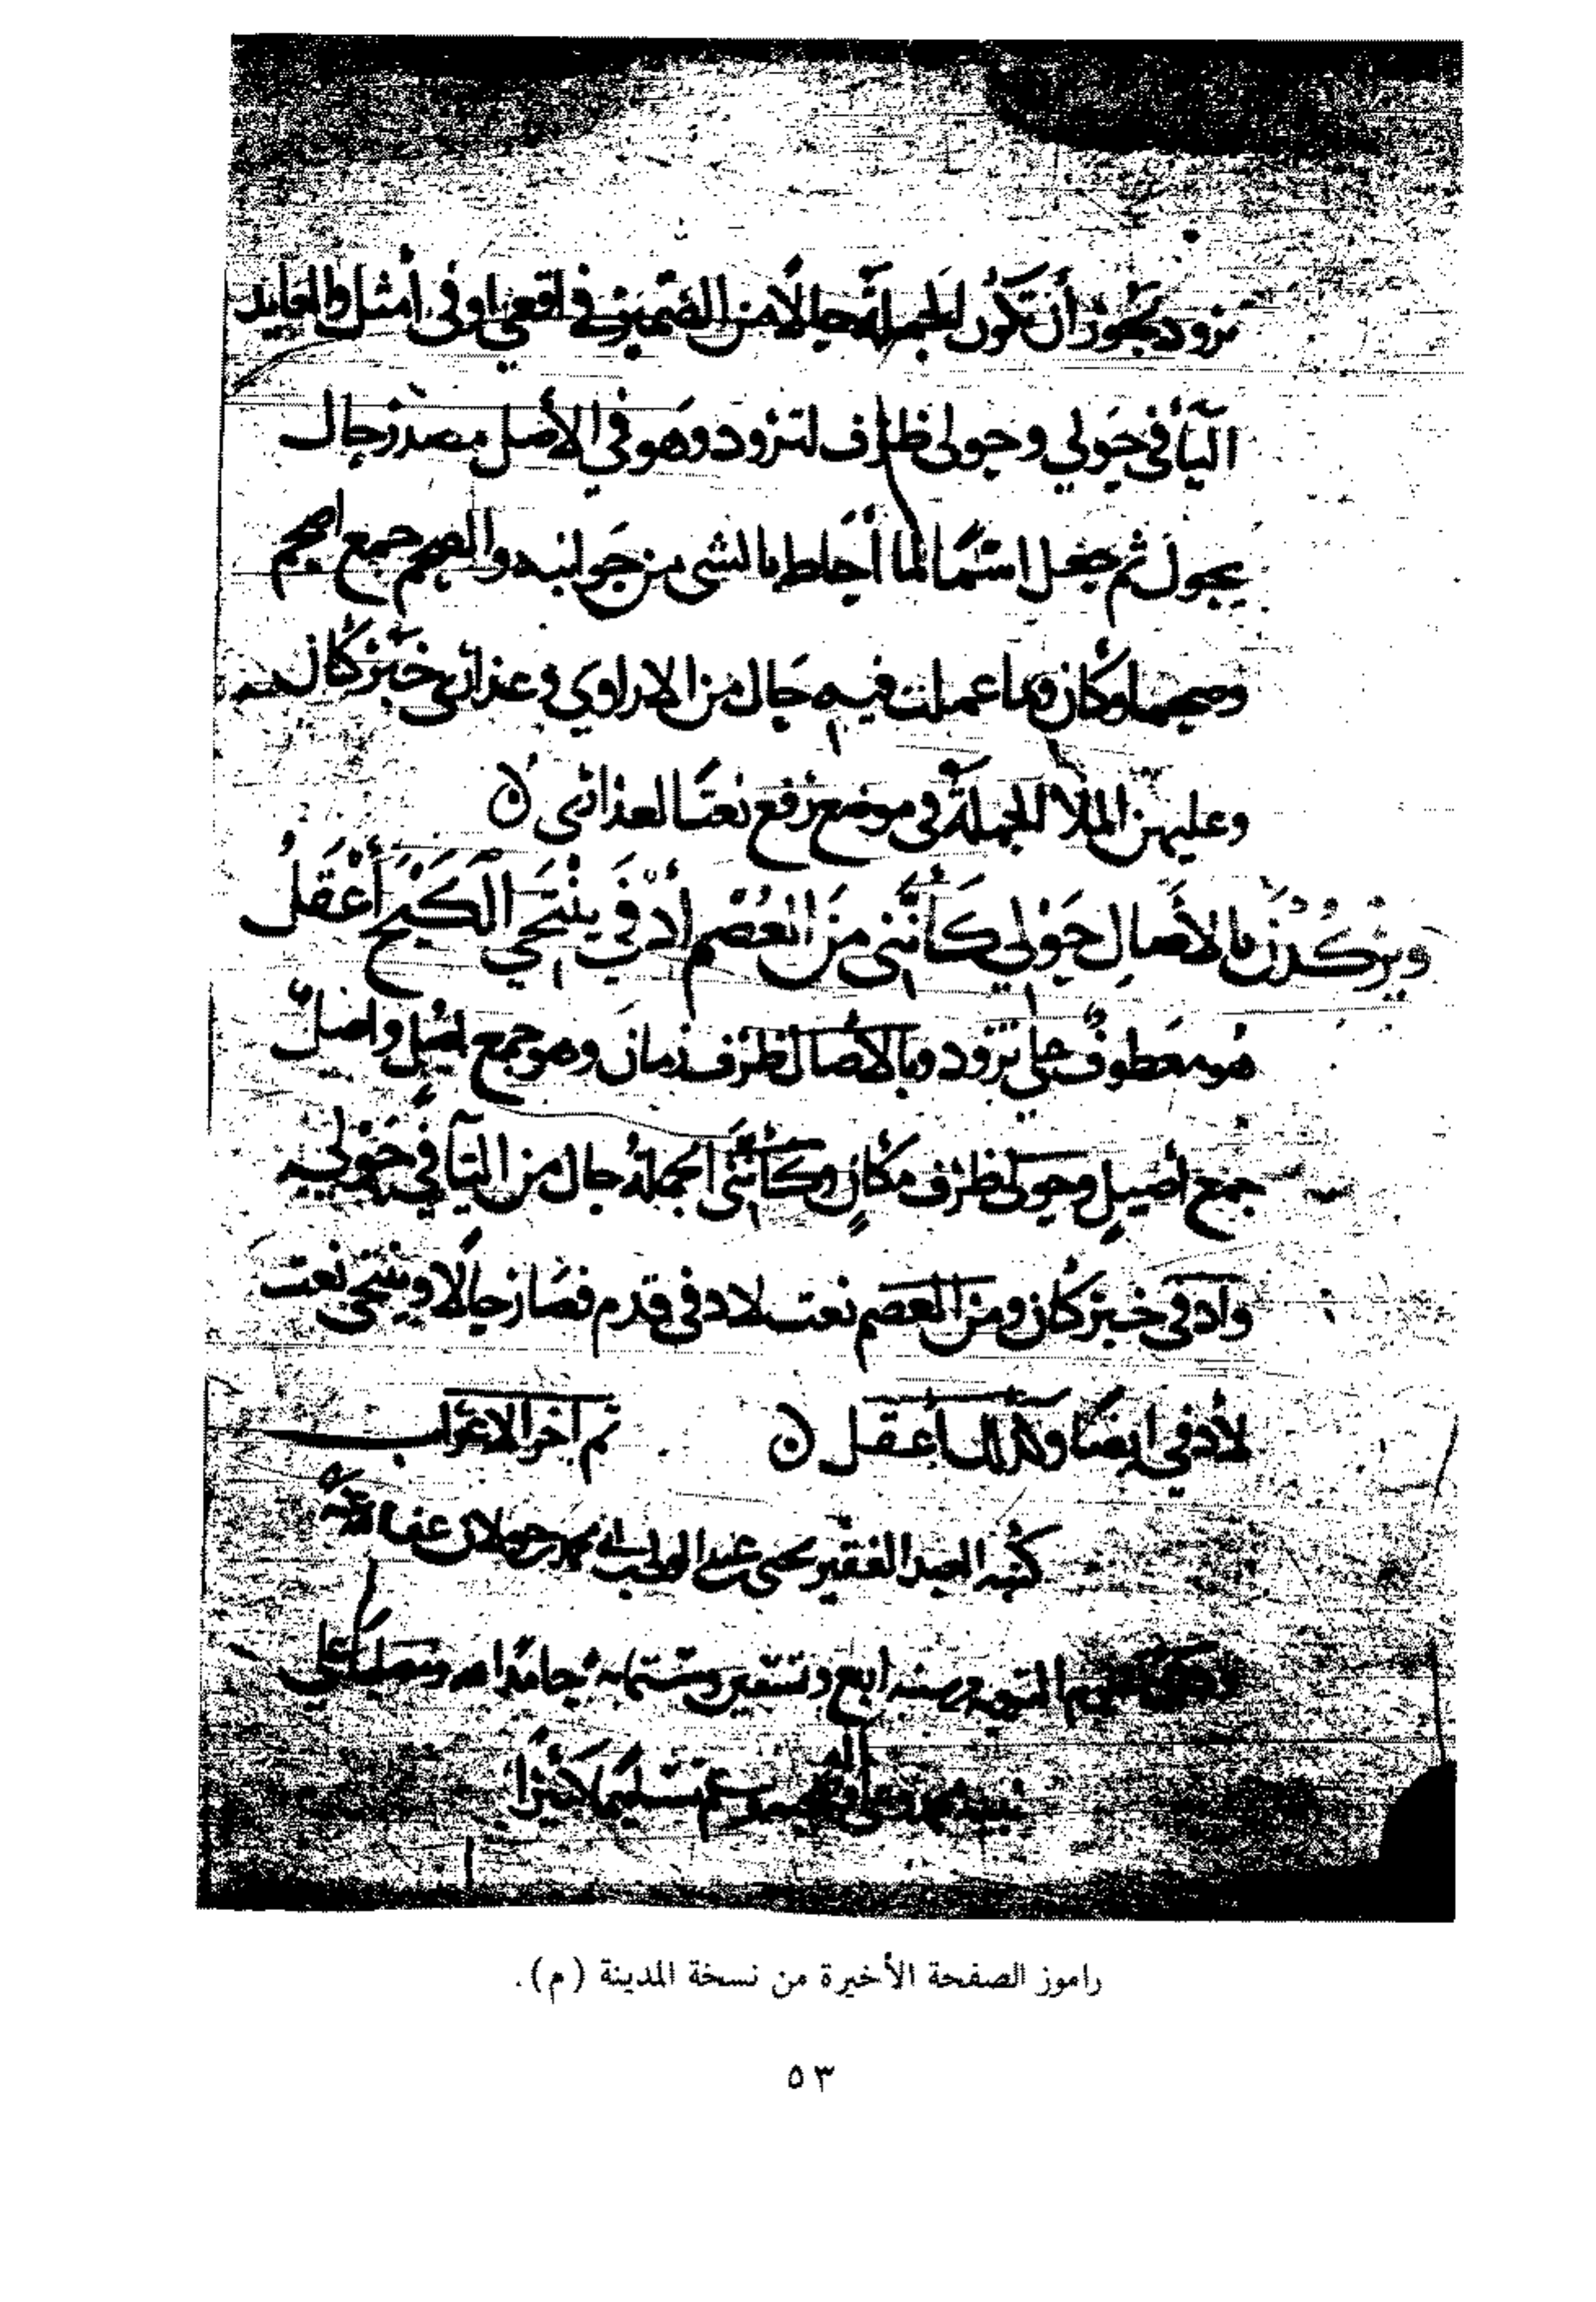 ترود ويجوز أن تكون الجملة حالا من الضمير في اقعي او في أمثل والعايد
اليآء في حولي وحولي ظرف لترود وهو في الأصل مصدر حال
يحول ثم جعل اسما لما أحاط بالشي من جوانبه والصحم جمع اصحم
وصحما وكان وما عملت فيه حال من الاراوي وعذارى خبر كان
وعليهن الملا الجملة في موضع رفع نعتا لعذارى ن
ويركدن بالاصال حولي كأنني من العصم أدفى ينتحي الكيح أعقل
هو معطوف على ترود وبالاصال ظرف زمان وهو جمع اصل واصل
جمع أصيل وحولي ظرف مكان وكأنني الجملة حال من اليآء في حولي
وادفى خبر كان ومن العصم نعت لادفى قدم فصار حالا وينتحي نعت
لأدفى ايضا وكذلك أعقل ن تم آخر الاعراب
كتبه العبد الفقير يحيى عبد الوهاب عفا الله عنه
سنة اربع وتسعين وستماية حامدا لله ومصليا على
نبيه محمد وعلى اله وصحبه ومسلم تسليما كثيرا
راموز الصفحة الأخيرة من نسخة المدينة (م).
٥٣